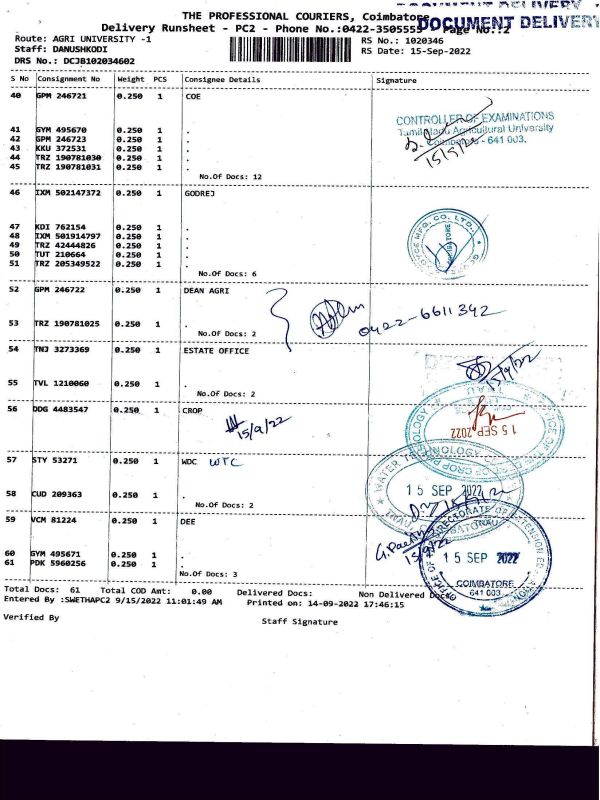 THE PROFESSIONAL COURIERS, Coimbatore
DOCUMENT DELIVERY
Delivery Runsheet - PC2 - Phone No.:0422-3505555 Page No.:2
Route: AGRI UNIVERSITY -1
RS No.: 1020346
Staff: DANUSHKODI
RS Date: 15-Sep-2022
DRS No.: DCJB102034602
S No Consignment No Weight PCS Consignee Details Signature
40 GPM 246721 0.250 1 COE
CONTROLLER OF EXAMINATIONS
Tamil Nadu Agricultural University
Coimbatore - 641 003.
15/9/22
41 GYM 495670 0.250 1 .
42 GPM 246723 0.250 1 .
43 KKU 372531 0.250 1 .
44 TRZ 190781030 0.250 1 .
45 TRZ 190781031 0.250 1 .
No.Of Docs: 12
46 IXM 502147372 0.250 1 GODREJ
47 KDI 762154 0.250 1 .
48 IXM 501914797 0.250 1 .
49 TRZ 42444826 0.250 1 .
50 TUT 210664 0.250 1 .
51 TRZ 205349522 0.250 1 .
No.Of Docs: 6
52 GPM 246722 0.250 1 DEAN AGRI
0422-6611342
53 TRZ 190781025 0.250 1 .
No.Of Docs: 2
54 TNJ 3273369 0.250 1 ESTATE OFFICE
15/9/22
55 TVL 1210060 0.250 1 .
No.Of Docs: 2
56 DDG 4483547 0.250 1 CROP
15/9/22
15 SEP 2022
57 STY 53271 0.250 1 WDC WTC
15 SEP 2022
58 CUD 209363 0.250 1 .
No.Of Docs: 2
59 VCM 81224 0.250 1 DEE
15/9/22
15 SEP 2022
COIMBATORE
641 003
60 GYM 495671 0.250 1 .
61 PDK 5960256 0.250 1 .
No.Of Docs: 3
Total Docs: 61 Total COD Amt: 0.00 Delivered Docs: Non Delivered Docs
Entered By :SWETHAPC2 9/15/2022 11:01:49 AM Printed on: 14-09-2022 17:46:15
Verified By Staff Signature